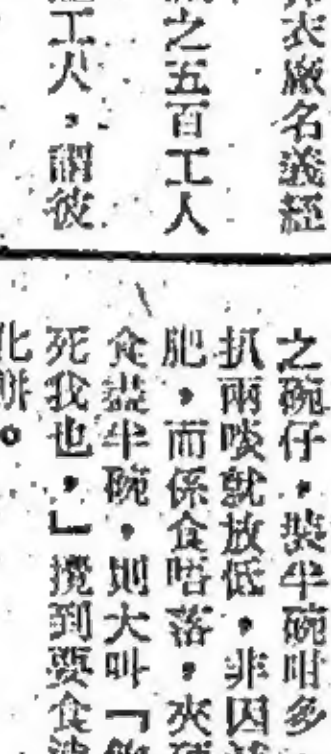 衣廠名義經
之五百工人
工人，謂彼
之碗仔，裝半碗咁多
扒兩啖就放低，非因
肥，而係食唔落，夾
食盡半碗，則大叫「
死我也，」攪到要食
化胼。